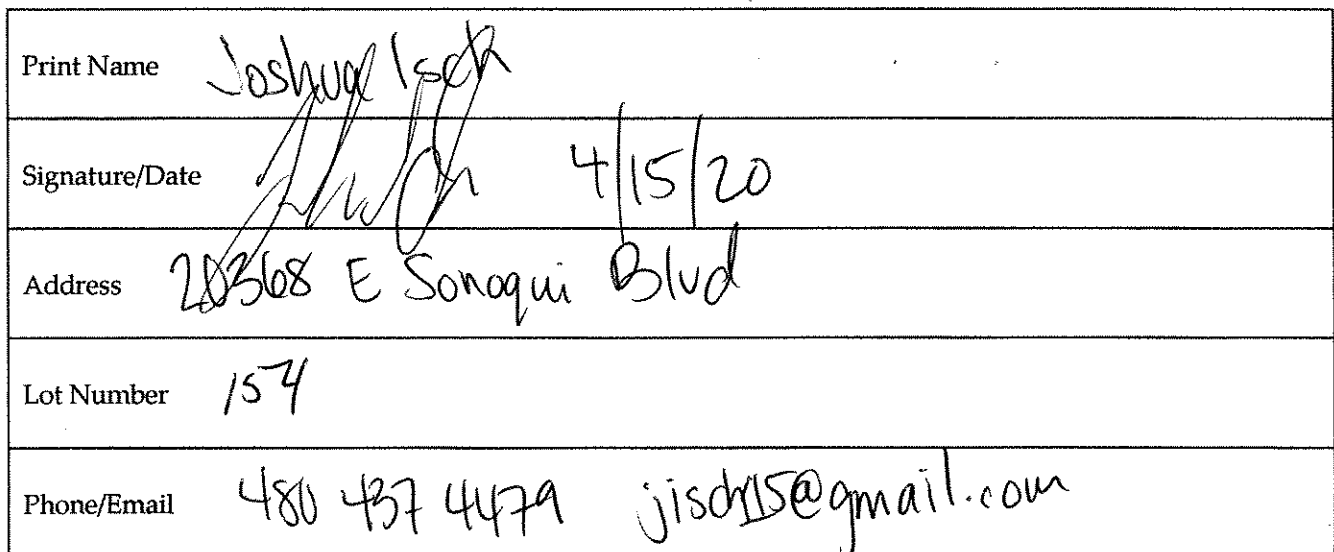 Print Name Joshua Isch
Signature/Date 4/15/20
Address 20368 E Sonoqui Blvd
Lot Number 154
Phone/Email 480 437 4479 jisch15@gmail.com